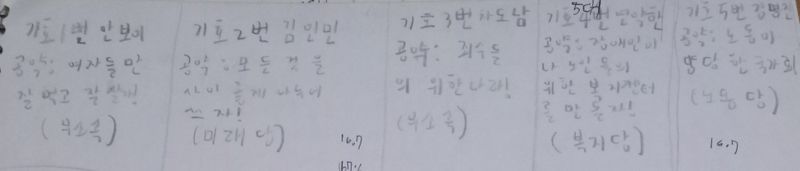 기호 1번 안보이
공약: 여자들만
잘 먹고 잘 살기!
(무소속)
기호 2번 김인민
공약: 모든 것을
사이 좋게 나누어
쓰자!
(미래당)
16.7
기호 3번 차도남
공약: 죄수들
의 위한 나라!
(무소속)
기호 4번 연약한
공약: 장애인이
나 노인들의
위한 복지센터
를 만들자!
(복지당)
기호 5번 김명진
공약: 노동이
당한 국가회
(노동당)
16.7